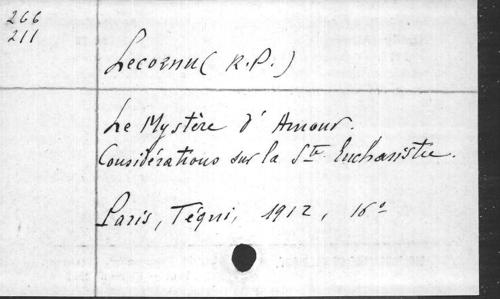 266
211
Lecornu ( R.P. )
Le Mystère d' Amour.
Considérations sur la Ste Eucharistie.
Paris, Téqui, 1912, 16°